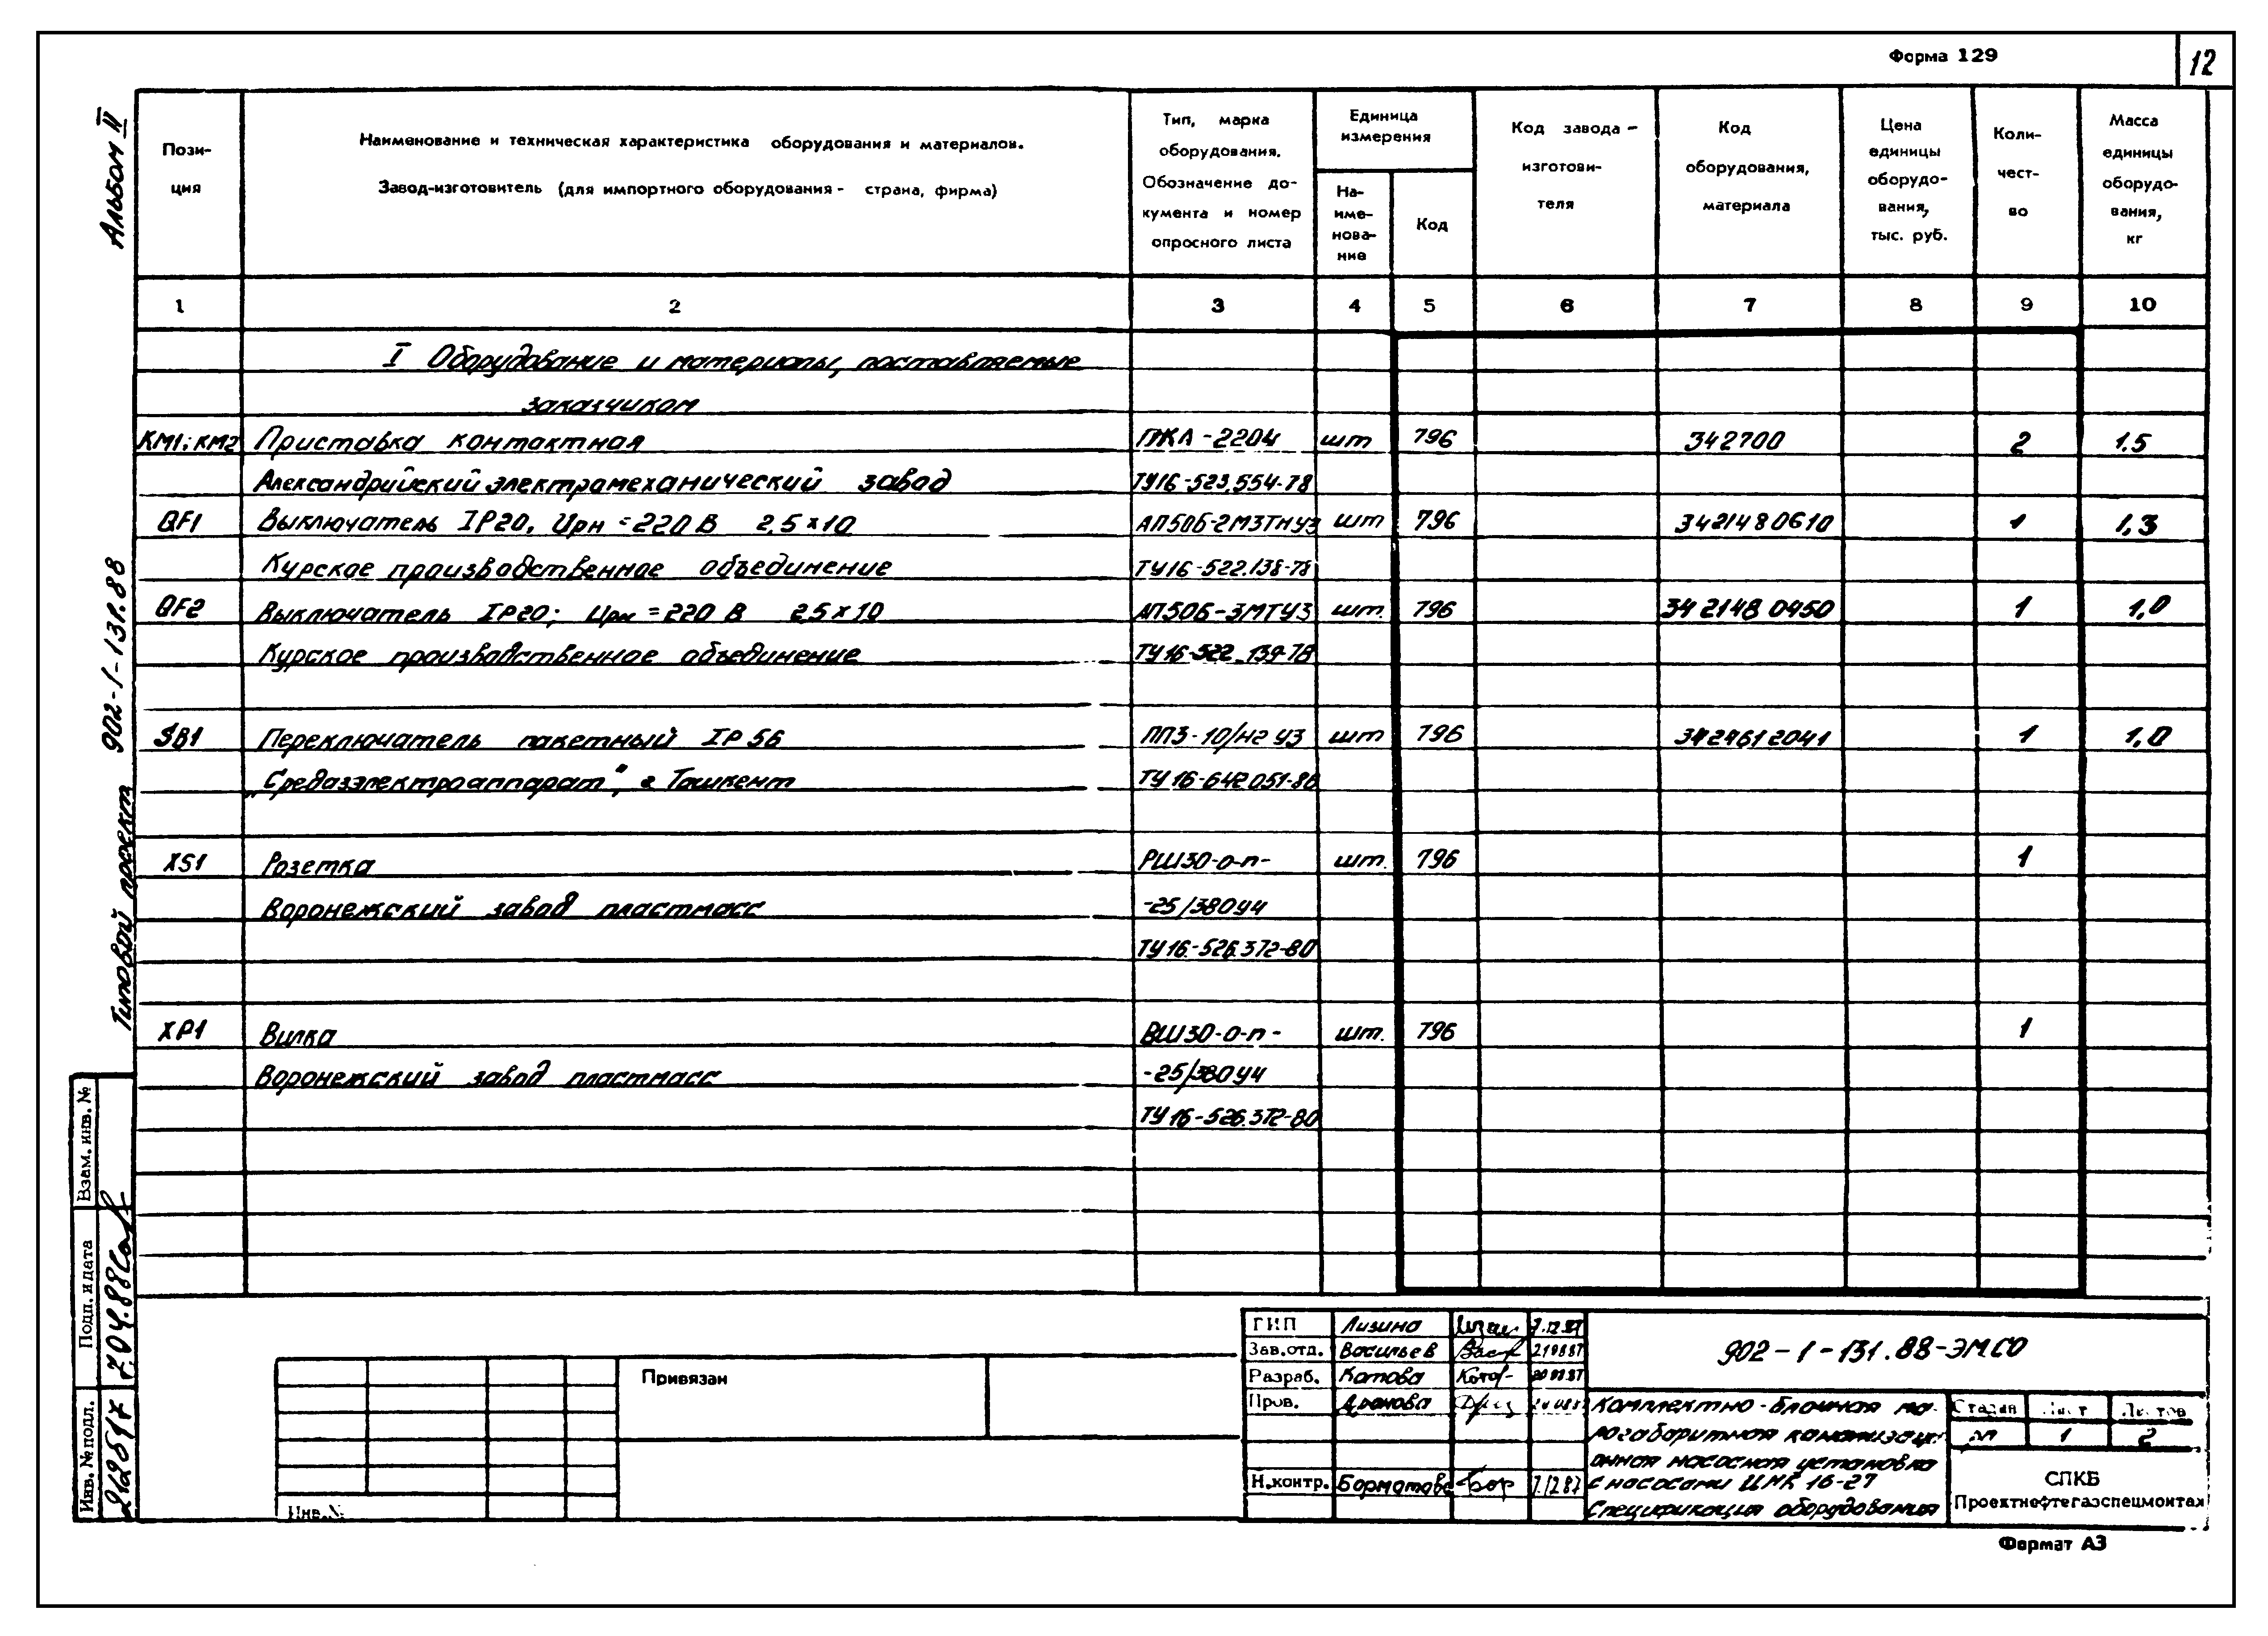 Форма 129
12
Альбом III
Типовой проект 902-1-131.88
Пози-
ция
Наименование и техническая характеристика оборудования и материалов.
Завод-изготовитель (для импортного оборудования - страна, фирма)
Тип, марка
оборудования.
Обозначение до-
кумента и номер
опросного листа
Единица
измерения
На-
име-
нова-
ние
Код
Код завода -
изготови-
теля
Код
оборудования,
материала
Цена
единицы
оборудо-
вания,
тыс. руб.
Коли-
чест-
во
Масса
единицы
оборудо-
вания,
кг
1 2 3 4 5 6 7 8 9 10
I Оборудование и материалы, поставляемые
заказчиком
КМ1; КМ2 Приставка контактная ПКЛ-2204 шт 796 342700 2 1.5
Александрийский электромеханический завод ТУ16-523.554-78
QF1 Выключатель IP20, Uрн =220 В 2,5×10 АП50Б-2М3ТНУ3 шт 796 3421480610 1 1,3
Курское производственное объединение ТУ16-522.138-78
QF2 Выключатель IP20; Uрн =220 В 2,5×10 АП50Б-3МТУ3 шт. 796 3421480450 1 1,0
Курское производственное объединение ТУ16-522.139-78
SB1 Переключатель пакетный IP 56 ПП3-10/Н2 У3 шт 796 3424612041 1 1,0
„Средазэлектроаппарат", г Ташкент ТУ16-642 051-86
XS1 Розетка РШ30-0-П- шт. 796 1
Воронежский завод пластмасс -25/380У4
ТУ16-526.372-80
XP1 Вилка ВШ30-0-П- шт. 796 1
Воронежский завод пластмасс -25/380У4
ТУ16-526.372-80
Взам. инв. №
Подп. и дата 7.04.88
Инв. № подл.
Привязан
Инв.№
ГИП Лизина 7.12.87
Зав.отд. Васильев
Разраб. Котова
Пров. Дронова
Н.контр. Борматова 7.12.87
902-1-131.88-ЭМСО
Комплектно-блочная ма-
логабаритная канализаци-
онная насосная установка
с насосами ЦМК 16-27
Спецификация оборудования
Стадия Лист Листов
РП 1 2
СПКБ
Проектнефтегазспецмонтаж
Формат А3